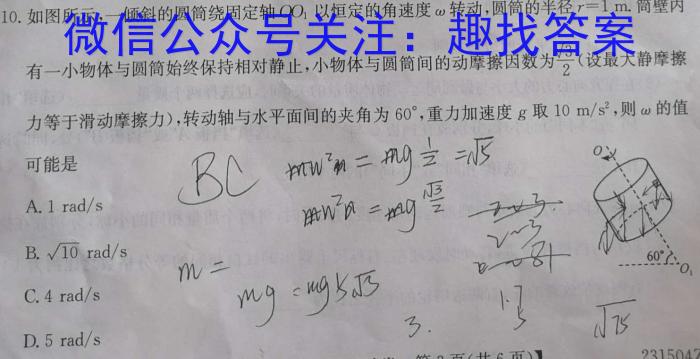 10. 如图所示,一倾斜的圆筒绕固定轴OO₁以恒定的角速度ω转动,圆筒的半径r=1 m. 筒壁内
微信公众号关注：趣找答案
有一小物体与圆筒始终保持相对静止,小物体与圆筒间的动摩擦因数为√3/2(设最大静摩擦
力等于滑动摩擦力),转动轴与水平面间的夹角为60°,重力加速度g取10 m/s²,则ω的值
可能是
BC
mw²r = mg 1/2 = √5
A. 1 rad/s
mw²r = mg √3/2
B. √10 rad/s
m =
C. 4 rad/s
mg = mg 5√3
1.7
5
D. 5 rad/s
3.
√75
O
60°
O₁
2315047